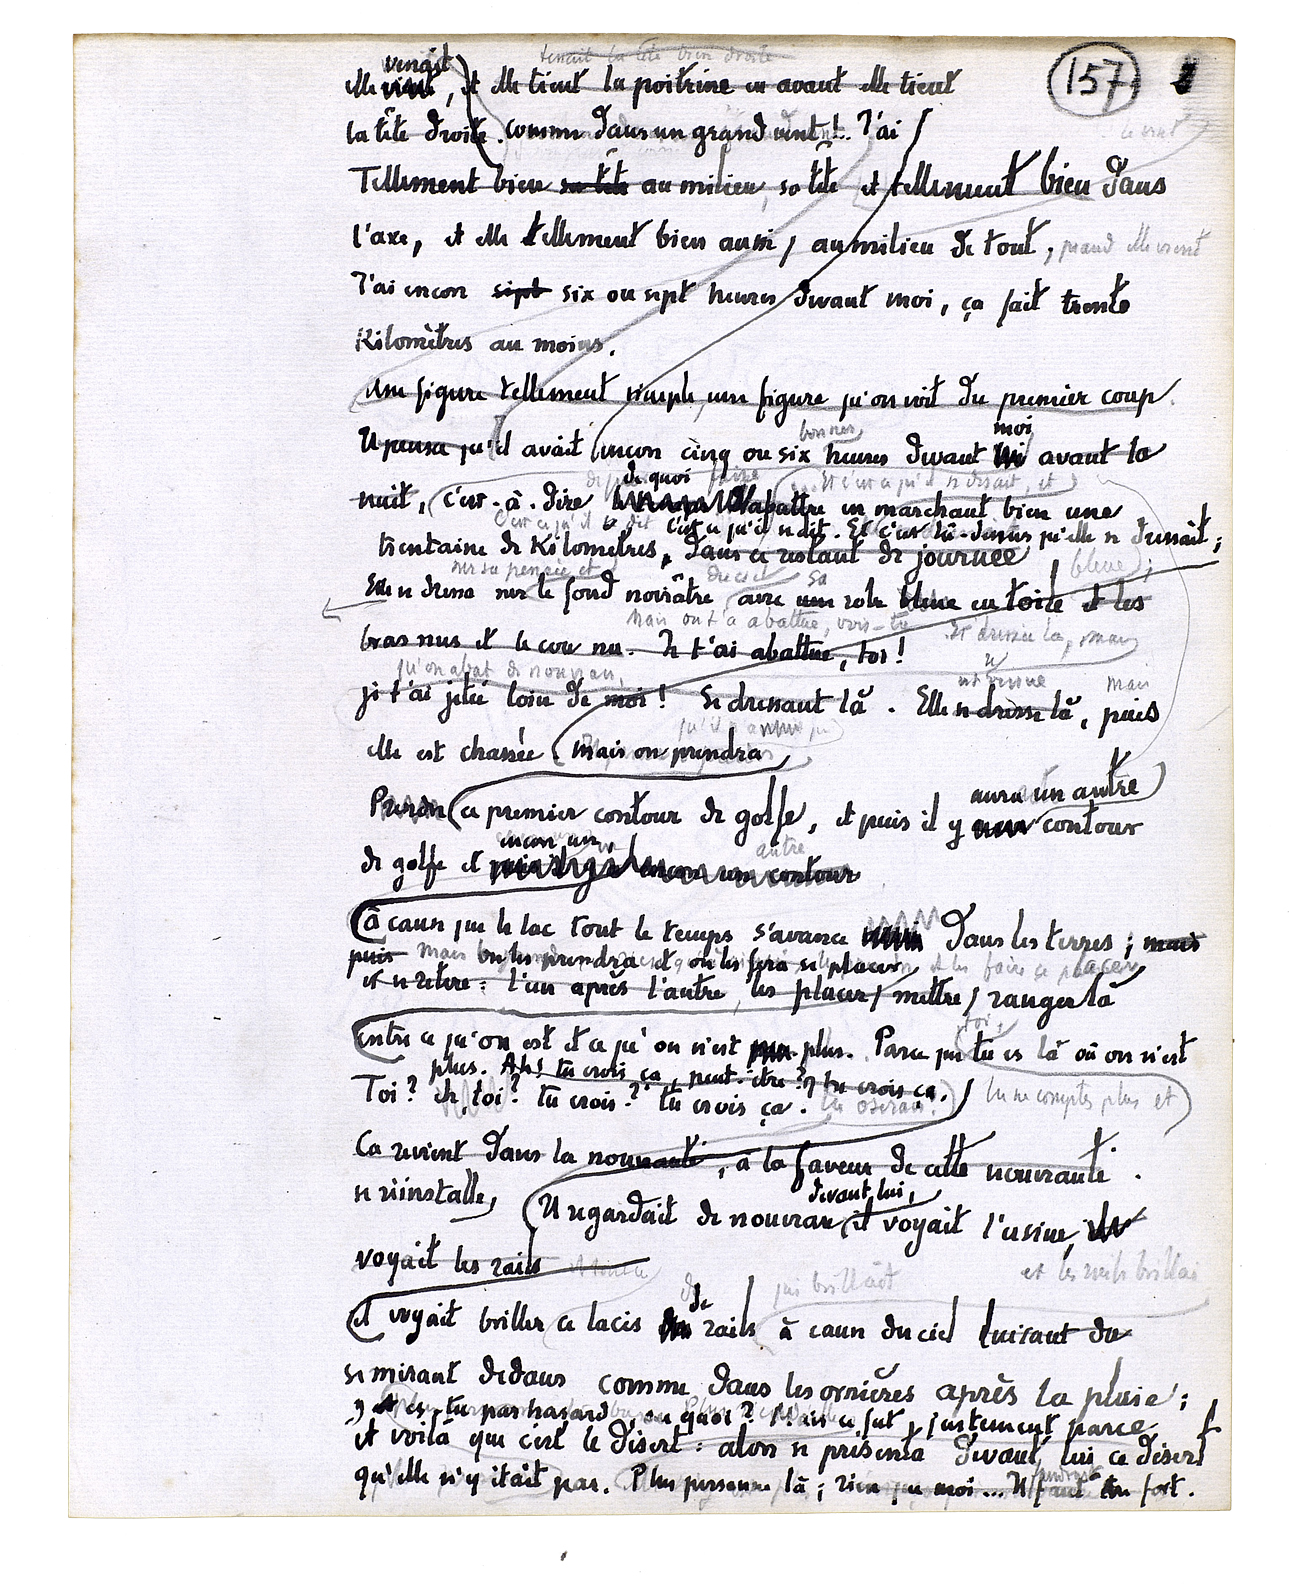 tenait la tête bien droite
venait
elle vient, et elle tient la poitrine en avant elle tient
157
la tête droite. comme dans un grand vent!.. J'ai
Tellement bien sa tête au milieu, sa tête et tellement bien dans
l'axe, et elle tellement bien aussi / au milieu de tout, quand elle vient
J'ai encore sept six ou sept heures devant moi, ça fait trente
Kilomètres au moins.
une figure tellement simple, une figure qu'on voit du premier coup.
bonnes moi
Il pensa qu'il avait encore cinq ou six heures devant lui avant la
de quoi faire Et c'est ce qu'il se disait, et
nuit, c'est-à-dire abattre en marchant bien une
C'est ce qu'il se dit c'est ce qu'il se dit. Et c'est là-dessus qu'elle se dressait;
trentaine de Kilomètres, dans ce restant de journée bleue);
sur sa pensée et du ciel sa
Elle se dressa sur le fond noirâtre avec une robe bleue en toile et les
Mais on t'a abattue, vois-tu
bras nus et le cou nu. Je t'ai abattue, toi!
qu'on abat de nouveau, est venue mais
je t'ai jetée loin de moi! Se dressant là. Elle se dresse là, puis
elle est chassée. mais on prendra
aura un autre
Prendre ce premier contour de golfe, et puis il y contour
encore un autre
de golfe et puis il y a encore un contour
à cause que le lac tout le temps s'avance dans les terres; mais
puis mais on les prendra et on les fera se placer et les faire se placer
et se retire: l'un après l'autre, les placer / mettre / ranger là
toi,
entre ce qu'on est et ce qu'on n'est plus. Parce que tu es là où on n'est
plus. Ah! tu crois ça, peut-être? tu crois ça.
Toi? eh, toi? tu crois? tu crois ça. tu oserais? tu ne comptes plus et
Ça revient dans la nouveauté, à la faveur de cette nouveauté.
devant lui,
se réinstalle, Il regardait de nouveau il voyait l'usine,
voyait les rails
et les rails brillai
de qui brillait
il voyait briller ce lacis de rails à cause du ciel luisant de
se mirant dedans comme dans les ornières après la pluie;
y es-tu par hasard, ou quoi? Mais ce fut justement parce
et voilà que c'est le désert: alors se présenta devant lui ce désert
qu'elle n'y était pas. Plus personne là; rien que moi... Il faut être fort.